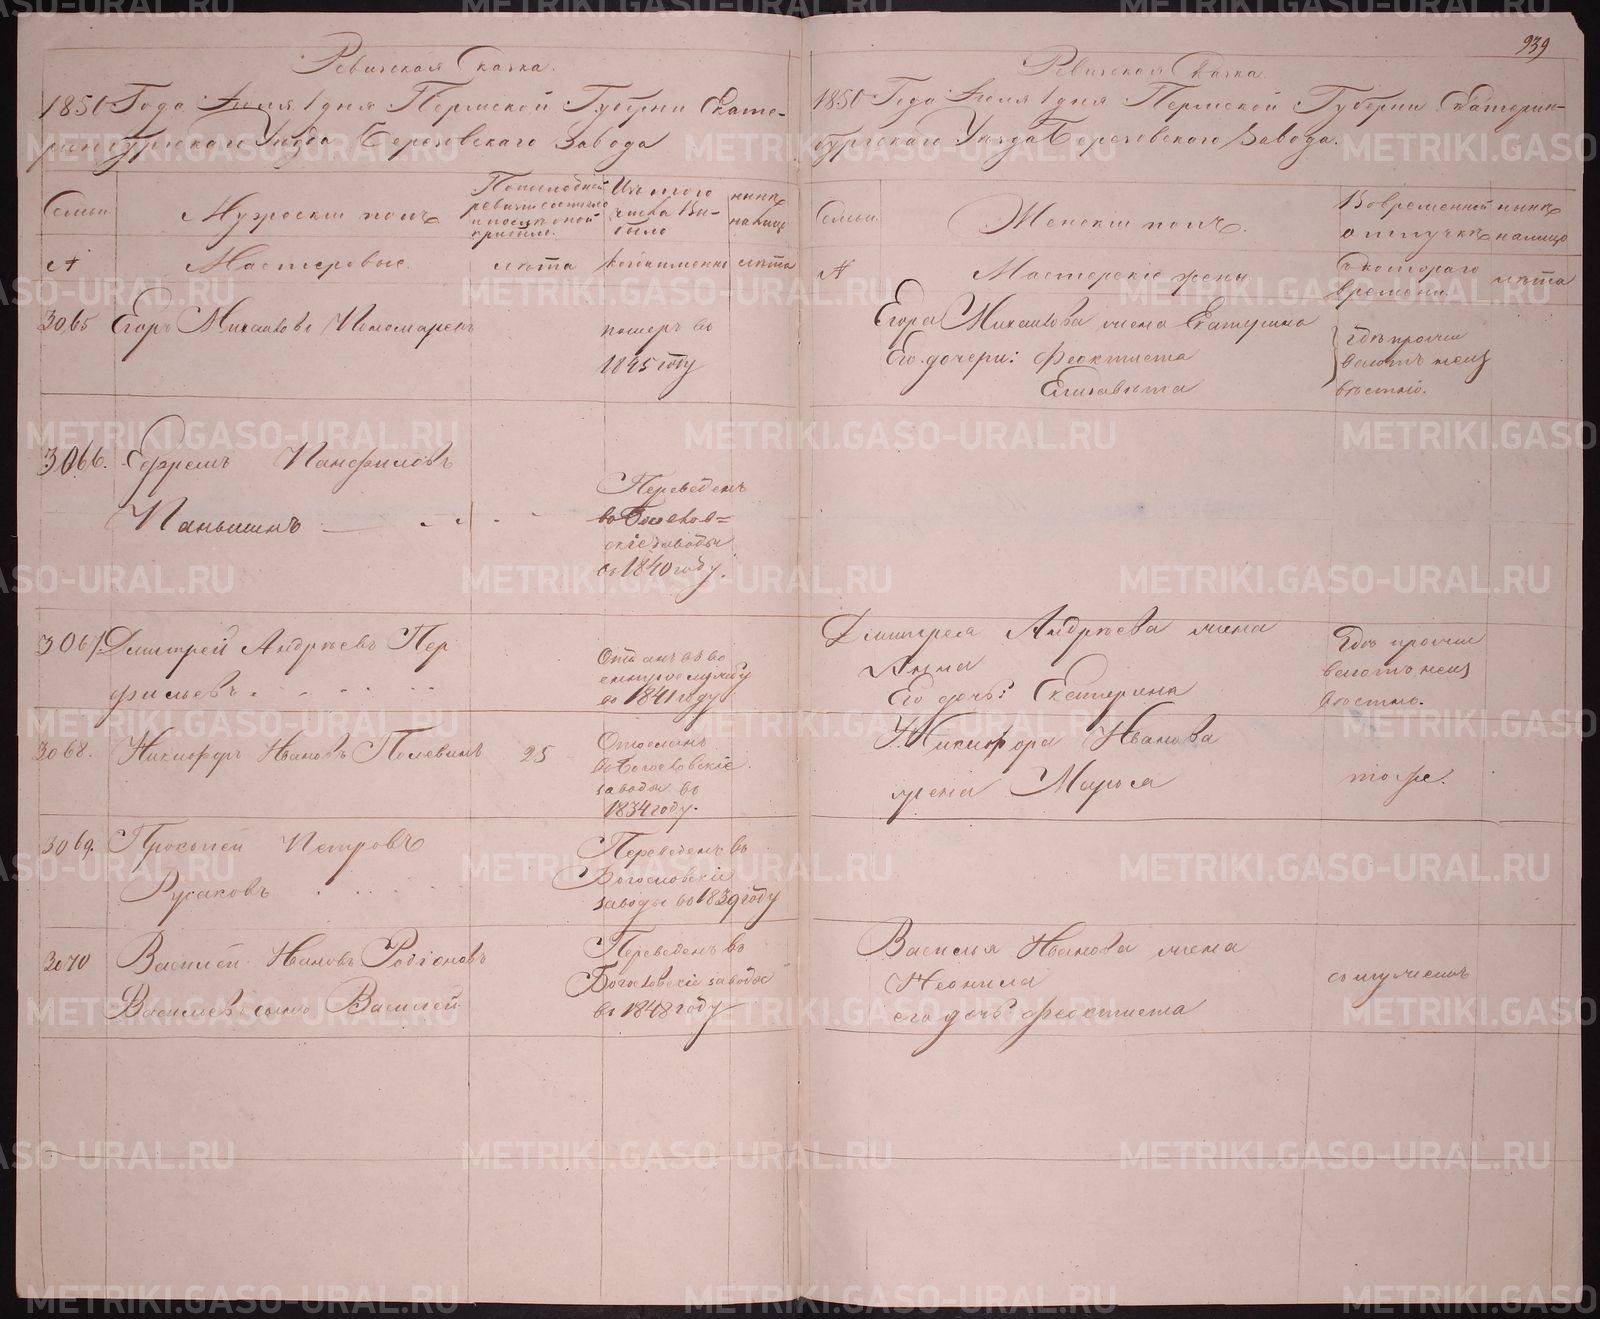 Ревизская Сказка.
1850 Года Июля 1 дня Пермской Губерни Екате-
ринбургского Уезда Березовскаго Завода
Семьи
Мужеский полъ
По последней
ревизіи состояло
и после оной
прибыло.
Изъ того
числа вы-
было
ныне
на лицо
№
Мастеровые.
лѣта
когда именно
лѣта
3065 Егоръ Михайловъ Пономаревъ
померъ въ
1845 году
3066. Ефремъ Панфиловъ
Паньшинъ
Переведенъ
въ Богослов=
скіе заводы
въ 1840 году.
3067. Дмитрей Андреевъ Пер
фильевъ
Отданъ въ во
енную службу
въ 1841 году
3068. Никифоръ Ивановъ Полевинъ 25
Отосланъ
въ Богословскіе
заводы въ
1834 году.
3069. Прокопей Петровъ
Русаковъ
Переведенъ въ
Богословскіе
заводы въ 1839 году
3070 Василей Ивановъ Родіоновъ
Васильевъ сынъ Василей
Переведенъ въ
Богословскіе заводы
въ 1848 году
939
Ревизская Сказка.
1850 Года Июля 1 дня Пермской Губерни Екатерин-
бургскаго Уезда Березовского Завода.
Семьи
Женскій полъ.
Во временной
отлучке
ныне
на лицо
№
Мастерскіе жены
съ котораго
времени
лѣта
Егора Михайлова жена Екатерина
Его дочери: Феоктиста
Елизавета
Где прожи
ваютъ неиз
вѣстно.
Дмитрея Андреева жена
Анна
Его дочь: Екатерина
Где прожи
ваютъ неиз
вѣстно.
Никифора Иванова
жена Марья
тоже.
Василья Иванова жена
Неонила
его дочь Феоктиста
съ мужемъ
METRIKI.GASO-URAL.RU